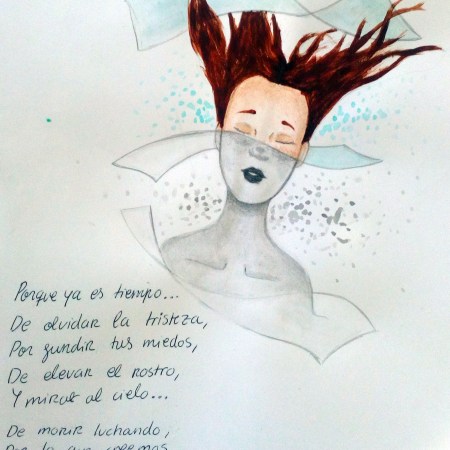 Porque ya es tiempo...
De olvidar la tristeza,
Por fundir tus miedos,
De elevar el rostro,
Y mirar al cielo...
De morir luchando,
Por lo que creemos